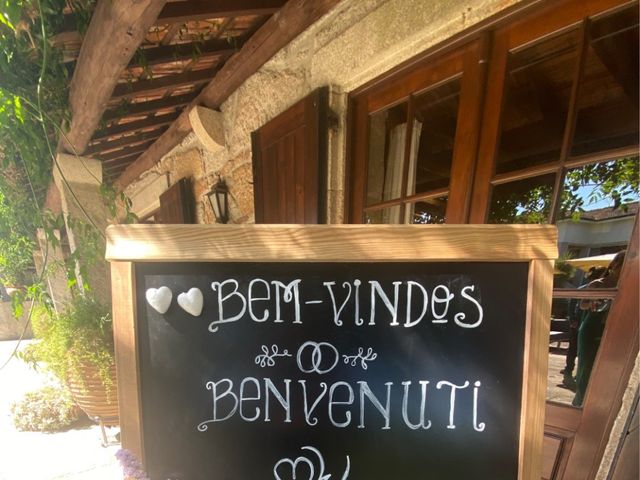 BEM-VINDOS
BENVENUTI